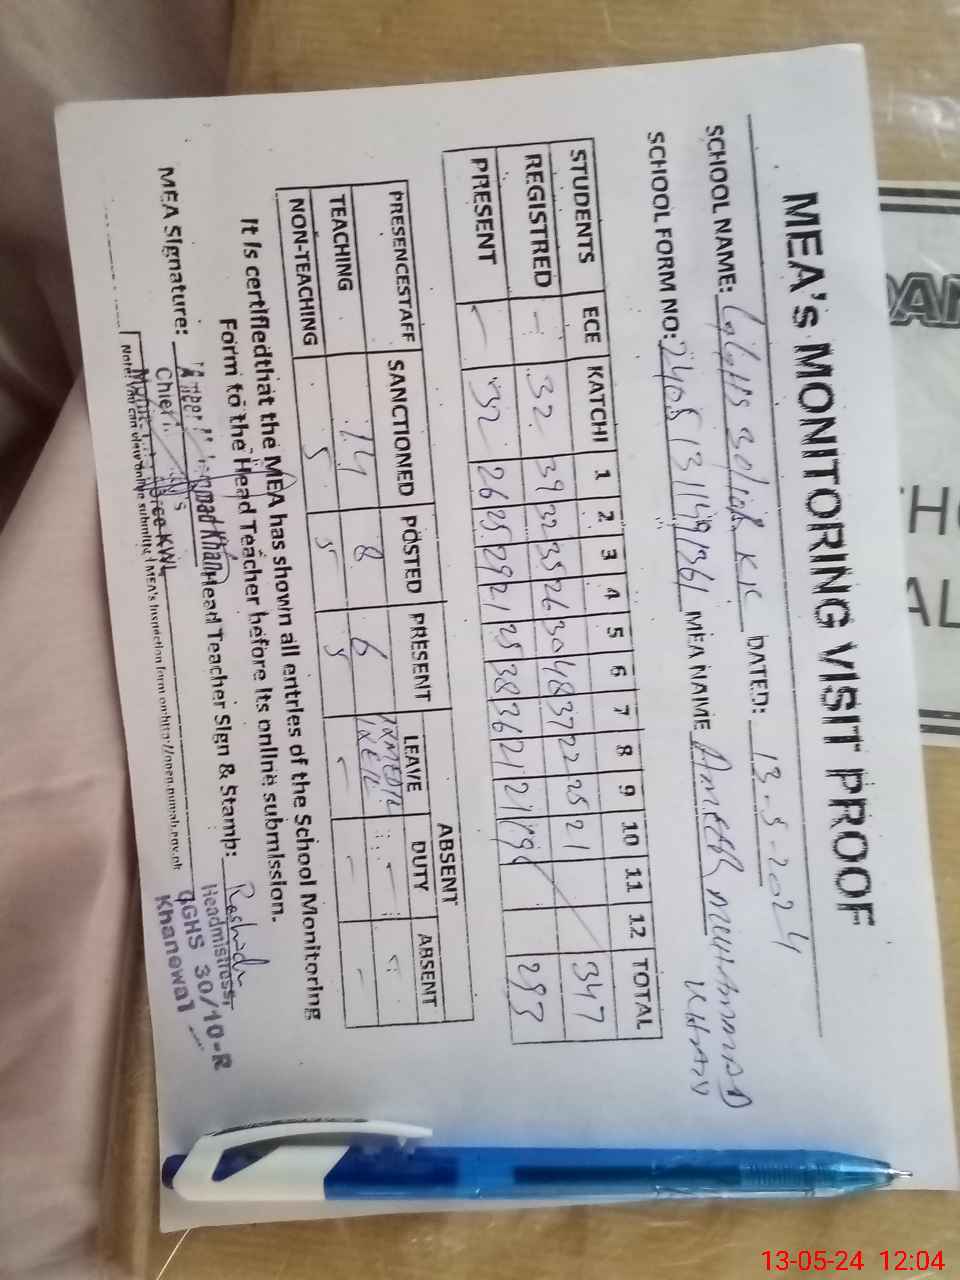 MEA's MONITORING VISIT PROOF
SCHOOL NAME: GGHS 30/10R KWL DATED: 13-5-2024
SCHOOL FORM NO: MEA NAME AMEER MUHAMMAD KHAN
STUDENTS ECE KATCHI 1 2 3 4 5 6 7 8 9 10 11 12 TOTAL
REGISTRED - 32 39 32 35 26 30 48 37 22 25 21 347
PRESENT - 32 26 25 29 21 25 38 36 21 21 19 293
PRESENCESTAFF SANCTIONED POSTED PRESENT ABSENT
LEAVE DUTY ABSENT
TEACHING 14 8 6
NON-TEACHING 5 5 5 - - -
It is certifiedthat the MEA has shown all entries of the School Monitoring
Form to the Head Teacher before its online submission.
MEA Signature: Head Teacher Sign & Stamp:
Ameer Muhammad Khan
Headmistress,
GGHS 30/10-R
Khanewal
13-05-24 12:04